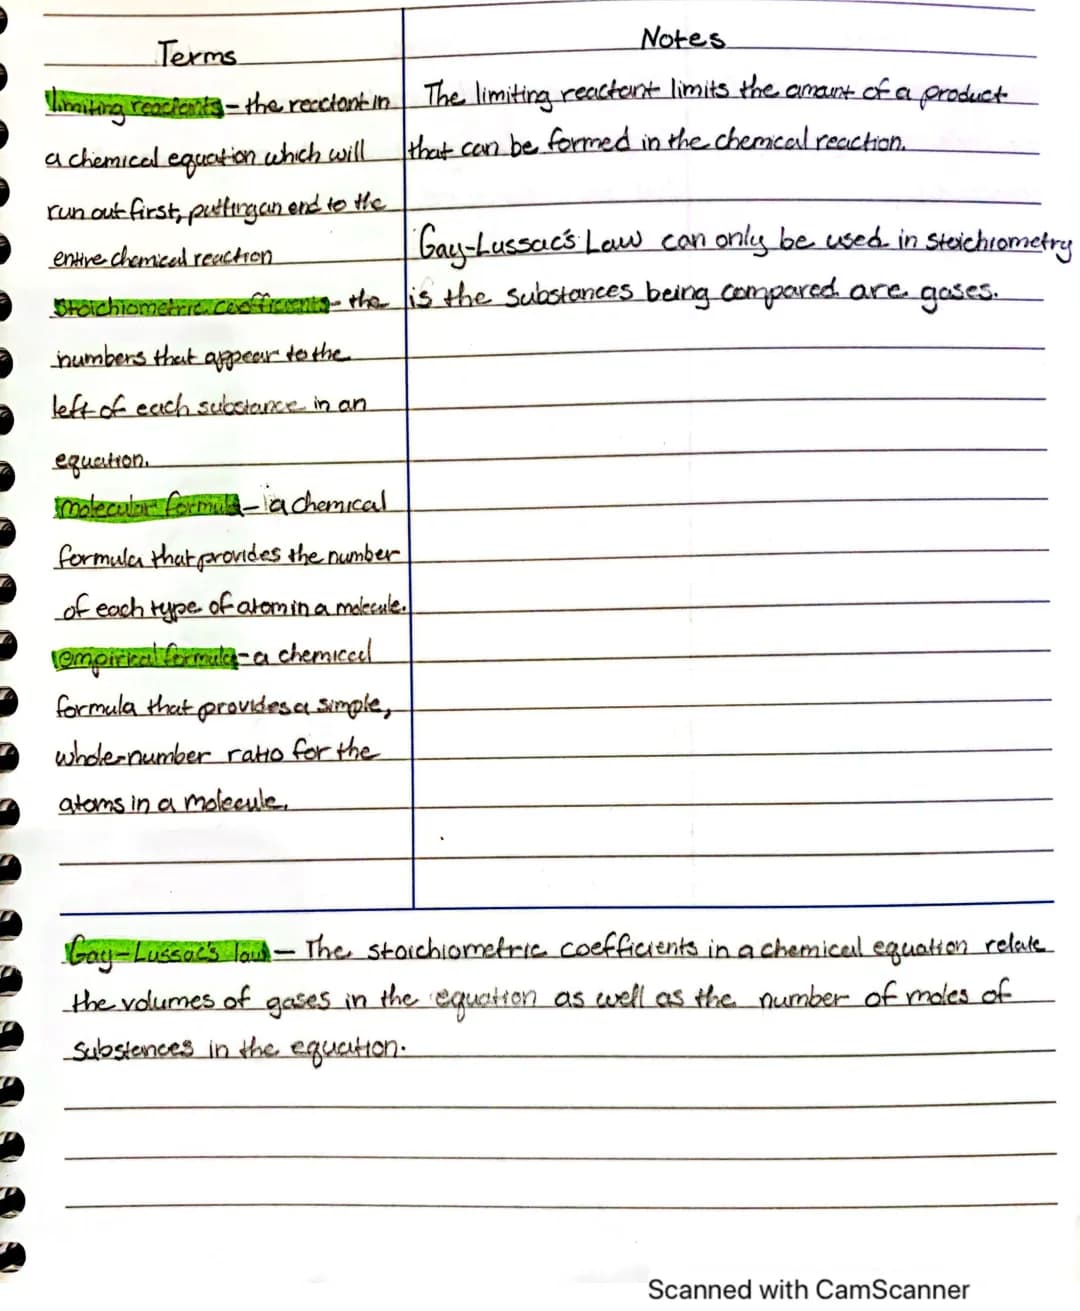 Terms
Notes
limiting reactants - the reactant in
a chemical equation which will
run out first, putting an end to the
entire chemical reaction
Stoichiometric coefficients - the
numbers that appear to the
left of each substance in an
equation.
molecular formula - a chemical
formula that provides the number
of each type of atom in a molecule.
empirical formula - a chemical
formula that provides a simple,
whole-number ratio for the
atoms in a molecule.
The limiting reactant limits the amount of a product
that can be formed in the chemical reaction.
Gay-Lussac's Law can only be used in stoichiometry
is the substances being compared are gases.
Gay-Lussac's law - The stoichiometric coefficients in a chemical equation relate
the volumes of gases in the equation as well as the number of moles of
substances in the equation.
Scanned with CamScanner